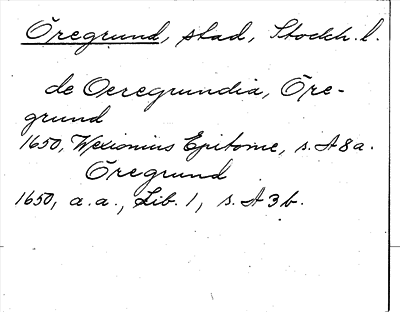 Öregrund, stad, Stockh. l.
de Oeregrundia, Öre-
grund
1650, Wexionius Epitome, s. A8a.
Öregrund
1650, a.a., Lib. 1, s. A3b.